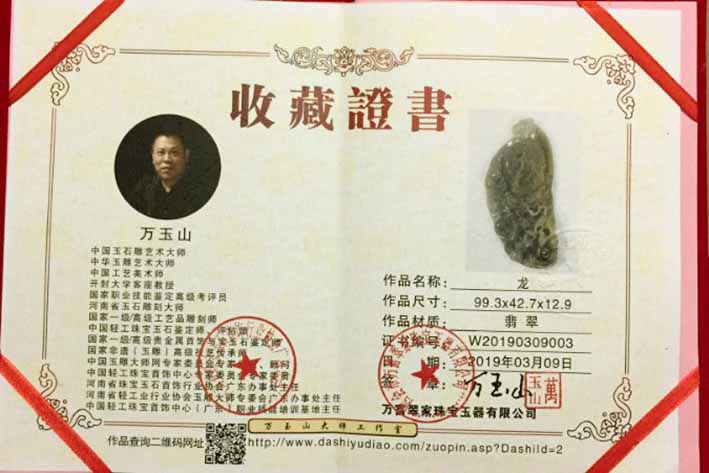 收藏證書
万玉山
中国玉石雕艺术大师
中华玉雕艺术大师
中国工艺美术师
开封大学客座教授
国家职业技能鉴定高级考评员
河南省玉石雕刻大师
国家一级/高级工艺品雕刻师
中国轻工珠宝玉石鉴定师、评估师
国家一级/高级贵金属首饰与宝玉石鉴定师
国家非遗（玉雕）高级技艺传承师
中国玉雕大师网专家委员会专家、顾问
中国轻工珠宝首饰中心专家委员会专家委员
河南省珠宝玉石首饰行业协会广东办事处主任
河南省轻工业行业协会玉雕大师专委会广东办事处主任
中国轻工珠宝首饰中心（广东）职业技能培训基地主任
作品名称: 龙
作品尺寸: 99.3x42.7x12.9
作品材质: 翡翠
证书编号: W20190309003
日 期: 2019年03月09日
签 章: 万玉山
萬玉山
万富翠家珠宝玉器有限公司
万玉山大师工作室
作品查询二维码网址
http://www.dashiyudiao.com/zuopin.asp?DashiId=2